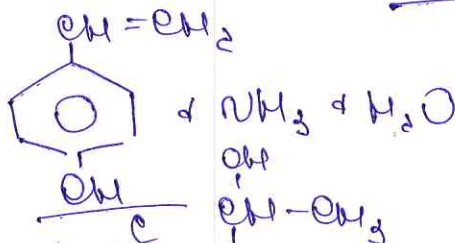 CH=CH₂
+ NH₃ + H₂O
OH
OH
C
CH-CH₃